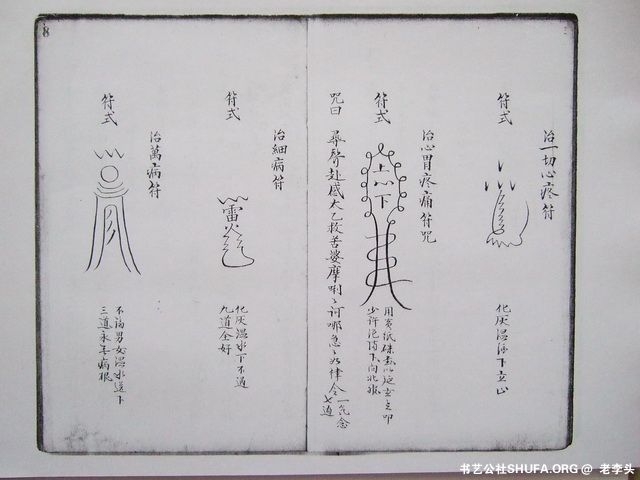 治一切心疼符
符式
化灰温酒下立止
治心胃疼痛符咒
符式
上心下
用黄紙硃
少許
下向北
咒曰 尋聲赴感太乙救苦婆摩唎唎訶哪急急如律令
一氣念
七遍
治細病符
符式
雷火
化灰温水下不過
九道全好
治萬病符
符式
不論男女温水送下
三道永年病根
8
书艺公社SHUFA.ORG @ 老李头